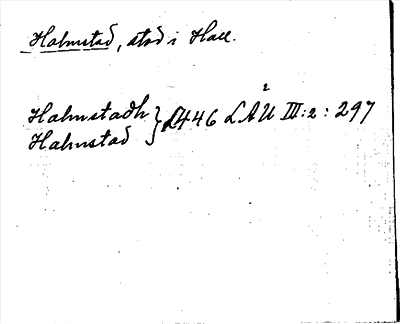 Halmstad, stad i Hall.
Halmstadh
Halmstad } 1446 LÄU² III:2:297